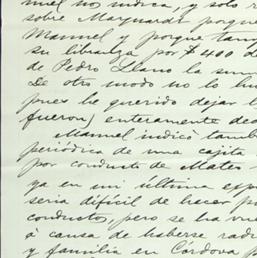 nuel nos indica, y solo r
sobre Marquardt porque
Manuel y porque tam
su libranza por $400 d
de Pedro Llano la sum
De otro modo no lo hu
pues he querido dejar l
fueron) enteramente dec
Manuel indicó tambi
periódica de una cajita
por conducto de Mates
ya en mi última esp
sería difícil de hacer p
conductos, pero se ha vu
á causa de haberse radi
y familia en Córdova p